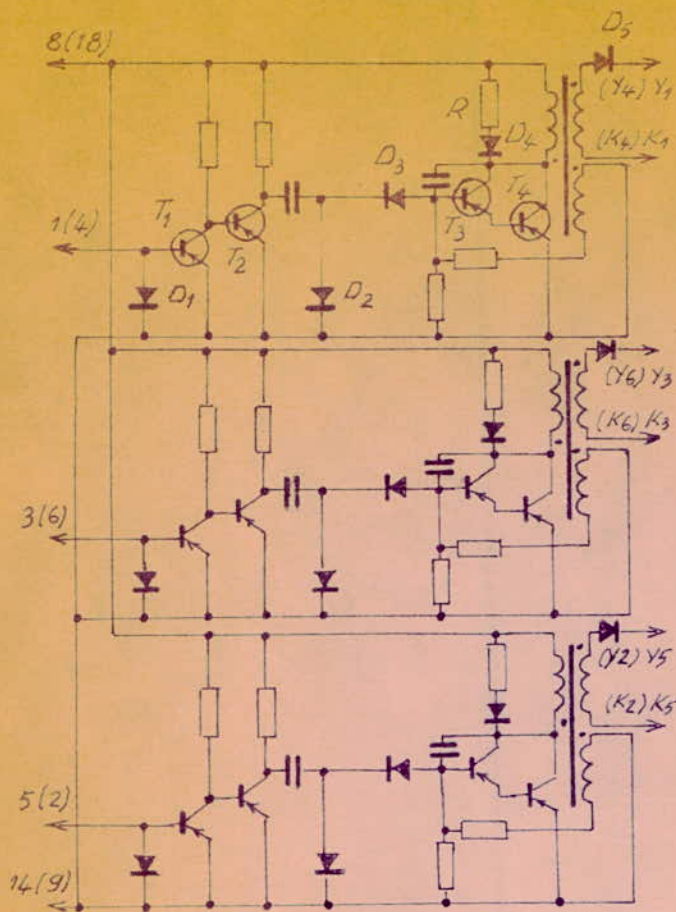 8(18)
D5
(Y4) Y1
R
D4
(K4) K1
D3
T4
T1
1(4)
T2
T3
D1
D2
(Y6) Y3
(K6) K3
3(6)
(Y2) Y5
(K2) K5
5(2)
14(9)